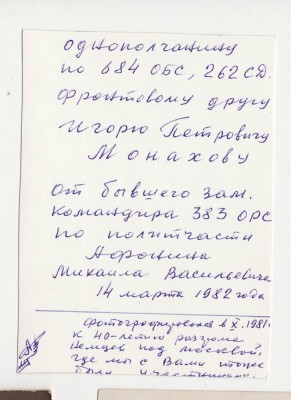 однополчанину
по 684 ОБС, 262 СД.
фронтовому другу
Игорю Петровичу
Монахову
от бывшего зам.
командира 383 ОРС
по политчасти
Афонина
Михаила Васильевича
14 марта 1982 года
фотографировался в X. 1981г.
к 40-летию разгрома
немцев под Москвой,
где мы с Вами тоже
были участниками.